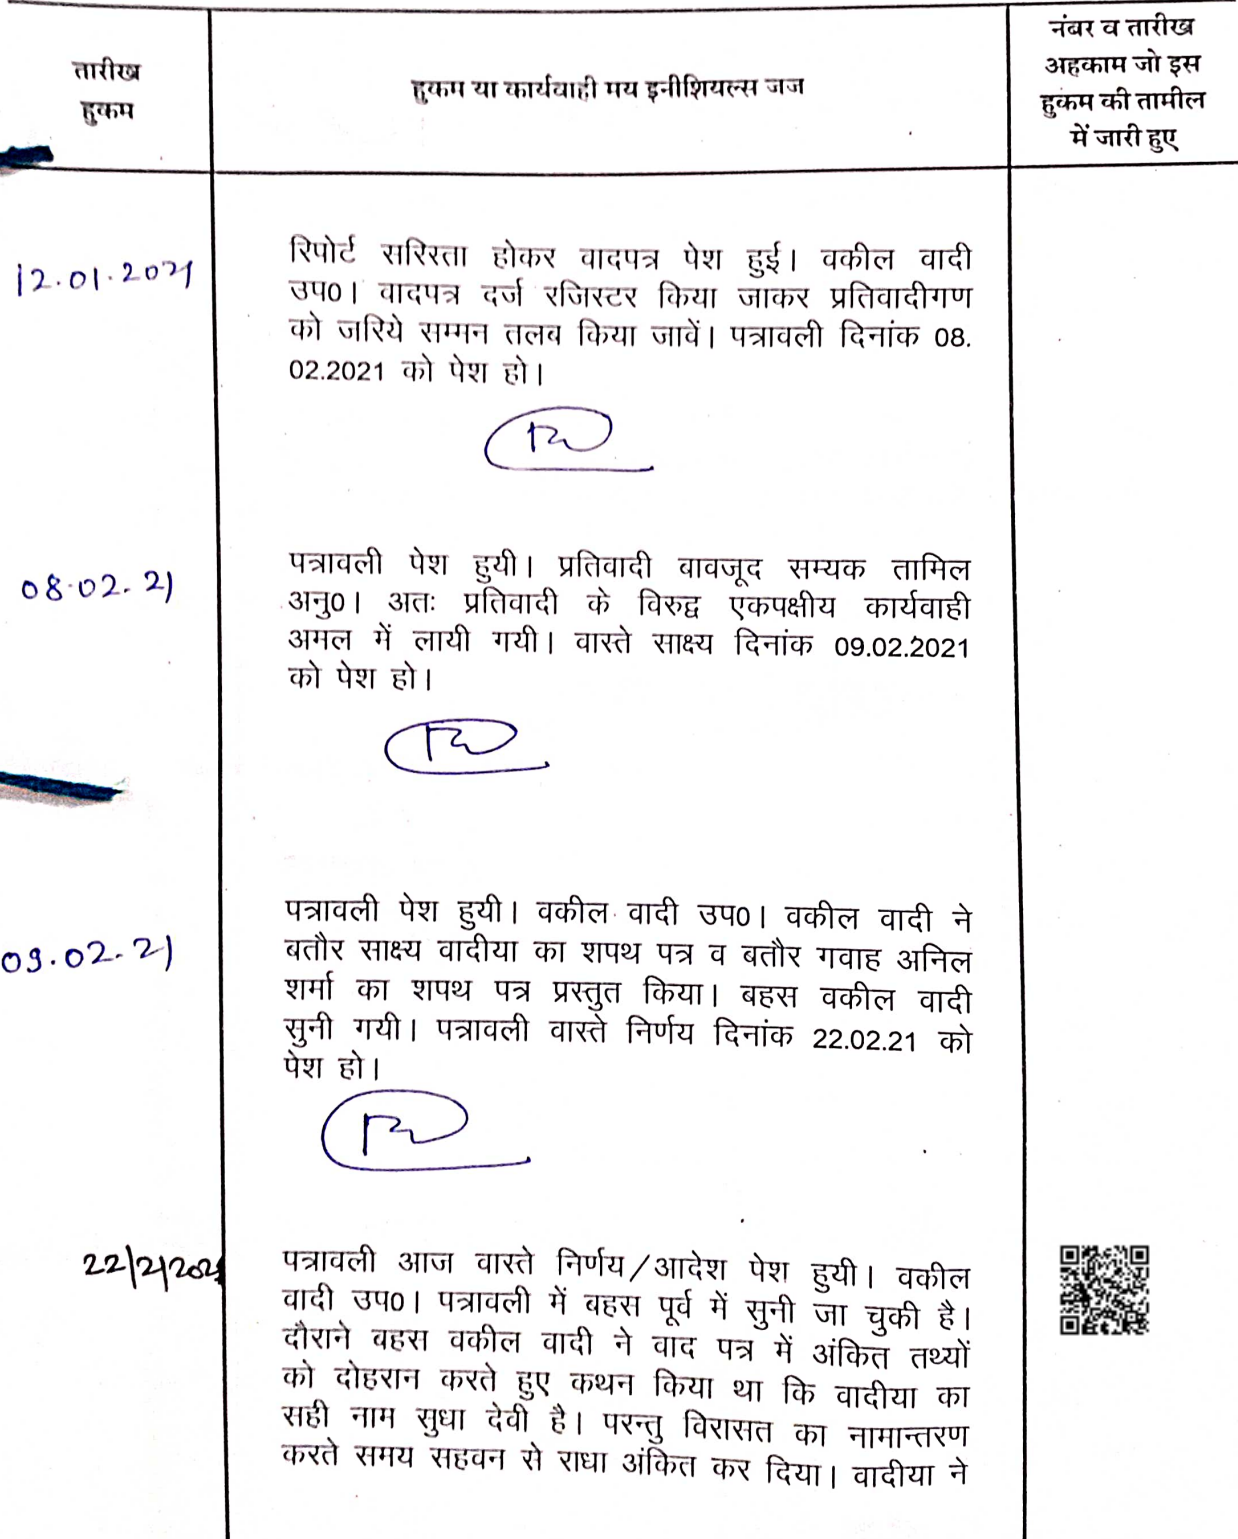 तारीख
हुकम
हुकम या कार्यवाही मय इनीशियल्स जज
नंबर व तारीख
अहकाम जो इस
हुकम की तामील
में जारी हुए
12.01.2021
रिपोर्ट सरिस्ता होकर वादपत्र पेश हुई। वकील वादी
उप0। वादपत्र दर्ज रजिस्टर किया जाकर प्रतिवादीगण
को जरिये सम्मन तलब किया जावें। पत्रावली दिनांक 08.
02.2021 को पेश हो।
08.02.21
पत्रावली पेश हुयी। प्रतिवादी वावजूद सम्यक तामिल
अनु0। अतः प्रतिवादी के विरुद्व एकपक्षीय कार्यवाही
अमल में लायी गयी। वास्ते साक्ष्य दिनांक 09.02.2021
को पेश हो।
09.02.21
पत्रावली पेश हुयी। वकील वादी उप0। वकील वादी ने
बतौर साक्ष्य वादीया का शपथ पत्र व बतौर गवाह अनिल
शर्मा का शपथ पत्र प्रस्तुत किया। बहस वकील वादी
सुनी गयी। पत्रावली वास्ते निर्णय दिनांक 22.02.21 को
पेश हो।
22/2/2021
पत्रावली आज वास्ते निर्णय/आदेश पेश हुयी। वकील
वादी उप0। पत्रावली में वहस पूर्व में सुनी जा चुकी है।
दौराने वहस वकील वादी ने वाद पत्र में अंकित तथ्यों
को दोहरान करते हुए कथन किया था कि वादीया का
सही नाम सुधा देवी है। परन्तु विरासत का नामान्तरण
करते समय सहवन से राधा अंकित कर दिया। वादीया ने